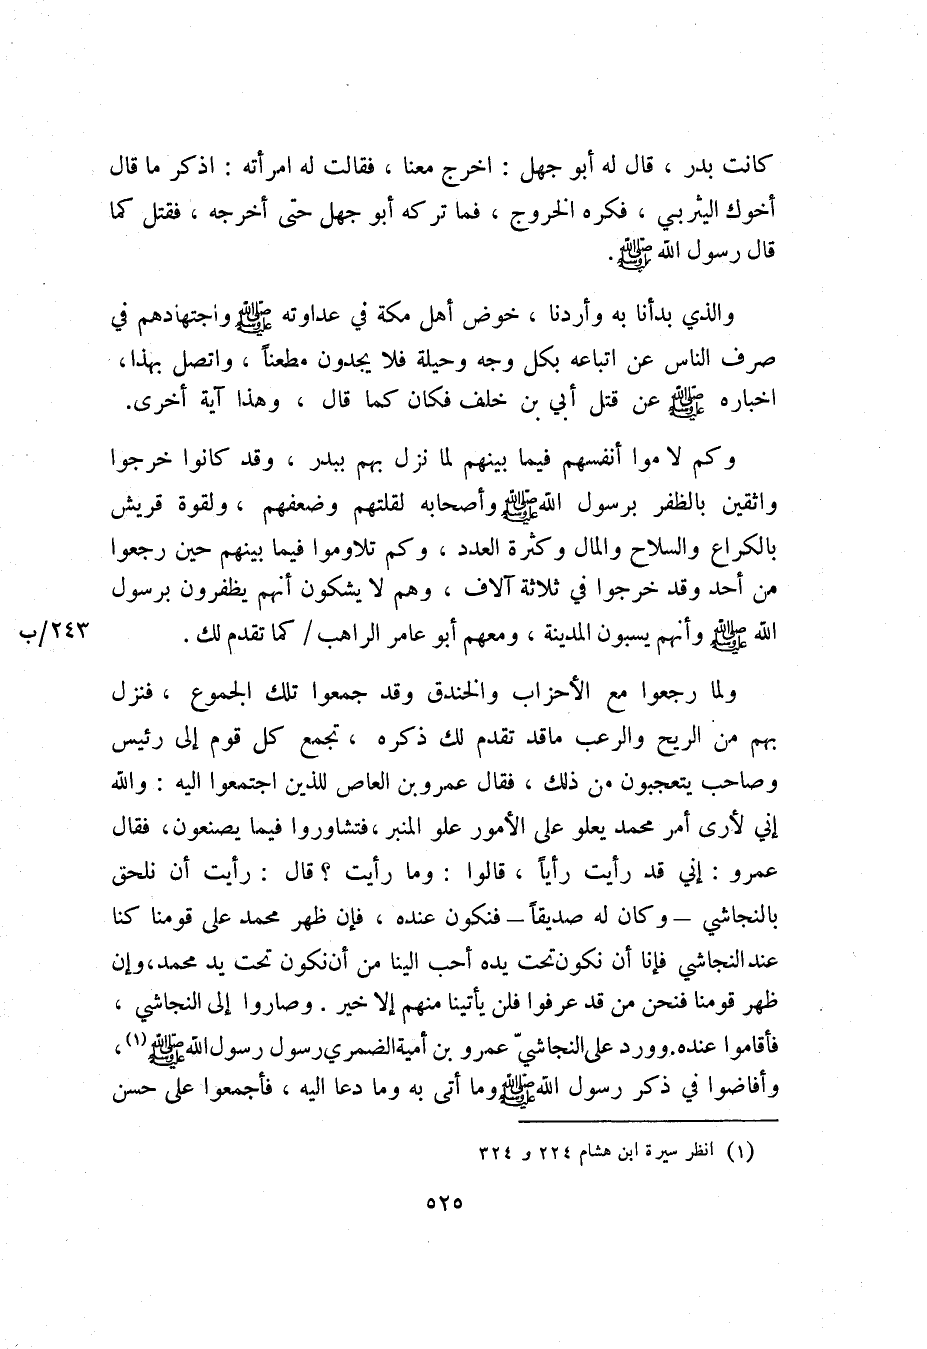 كانت بدر ، قال له أبو جهل : اخرج معنا ، فقالت له امرأته : اذكر ما قال
أخوك اليثربي ، فكره الخروج ، فما تركه أبو جهل حتى أخرجه ، فقتل كما
قال رسول الله ﷺ .
والذي بدأنا به وأردنا ، خوض أهل مكة في عداوته ﷺ واجتهادهم في
صرف الناس عن اتباعه بكل وجه وحيلة فلا يجدون مطعناً ، واتصل بهذا ،
اخباره ﷺ عن قتل أبي بن خلف فكان كما قال ، وهذا آية أخرى.
وكم لاموا أنفسهم فيما بينهم لما نزل بهم ببدر ، وقد كانوا خرجوا
واثقين بالظفر برسول الله ﷺ وأصحابه لقلتهم وضعفهم ، ولقوة قريش
بالكراع والسلاح والمال وكثرة العدد ، وكم تلاوموا فيما بينهم حين رجعوا
من أحد وقد خرجوا في ثلاثة آلاف ، وهم لا يشكون أنهم يظفرون برسول
الله ﷺ وأنهم يسبون المدينة ، ومعهم أبو عامر الراهب / كما تقدم لك . ٢٤٣/ب
ولما رجعوا مع الأحزاب والخندق وقد جمعوا تلك الجموع ، فنزل
بهم من الريح والرعب ماقد تقدم لك ذكره ، تجمع كل قوم إلى رئيس
وصاحب يتعجبون من ذلك ، فقال عمرو بن العاص للذين اجتمعوا اليه : والله
إني لأرى أمر محمد يعلو على الأمور علو المنبر ، فتشاوروا فيما يصنعون ، فقال
عمرو : إني قد رأيت رأياً ، قالوا : وما رأيت ؟ قال : رأيت أن نلحق
بالنجاشي – وكان له صديقاً – فنكون عنده ، فإن ظهر محمد على قومنا كنا
عند النجاشي فإنا أن نكون تحت يده أحب الينا من أن نكون تحت يد محمد ، وإن
ظهر قومنا فنحن من قد عرفوا فلن يأتينا منهم إلا خير . وصاروا إلى النجاشي ،
فأقاموا عنده. وورد على النجاشيّ عمرو بن أمية الضمري رسول رسول الله ﷺ (١) ،
وأفاضوا في ذكر رسول الله ﷺ وما أتى به وما دعا اليه ، فأجمعوا على حسن
(١) انظر سيرة ابن هشام ٢٢٤ و ٣٢٤
٥٢٥